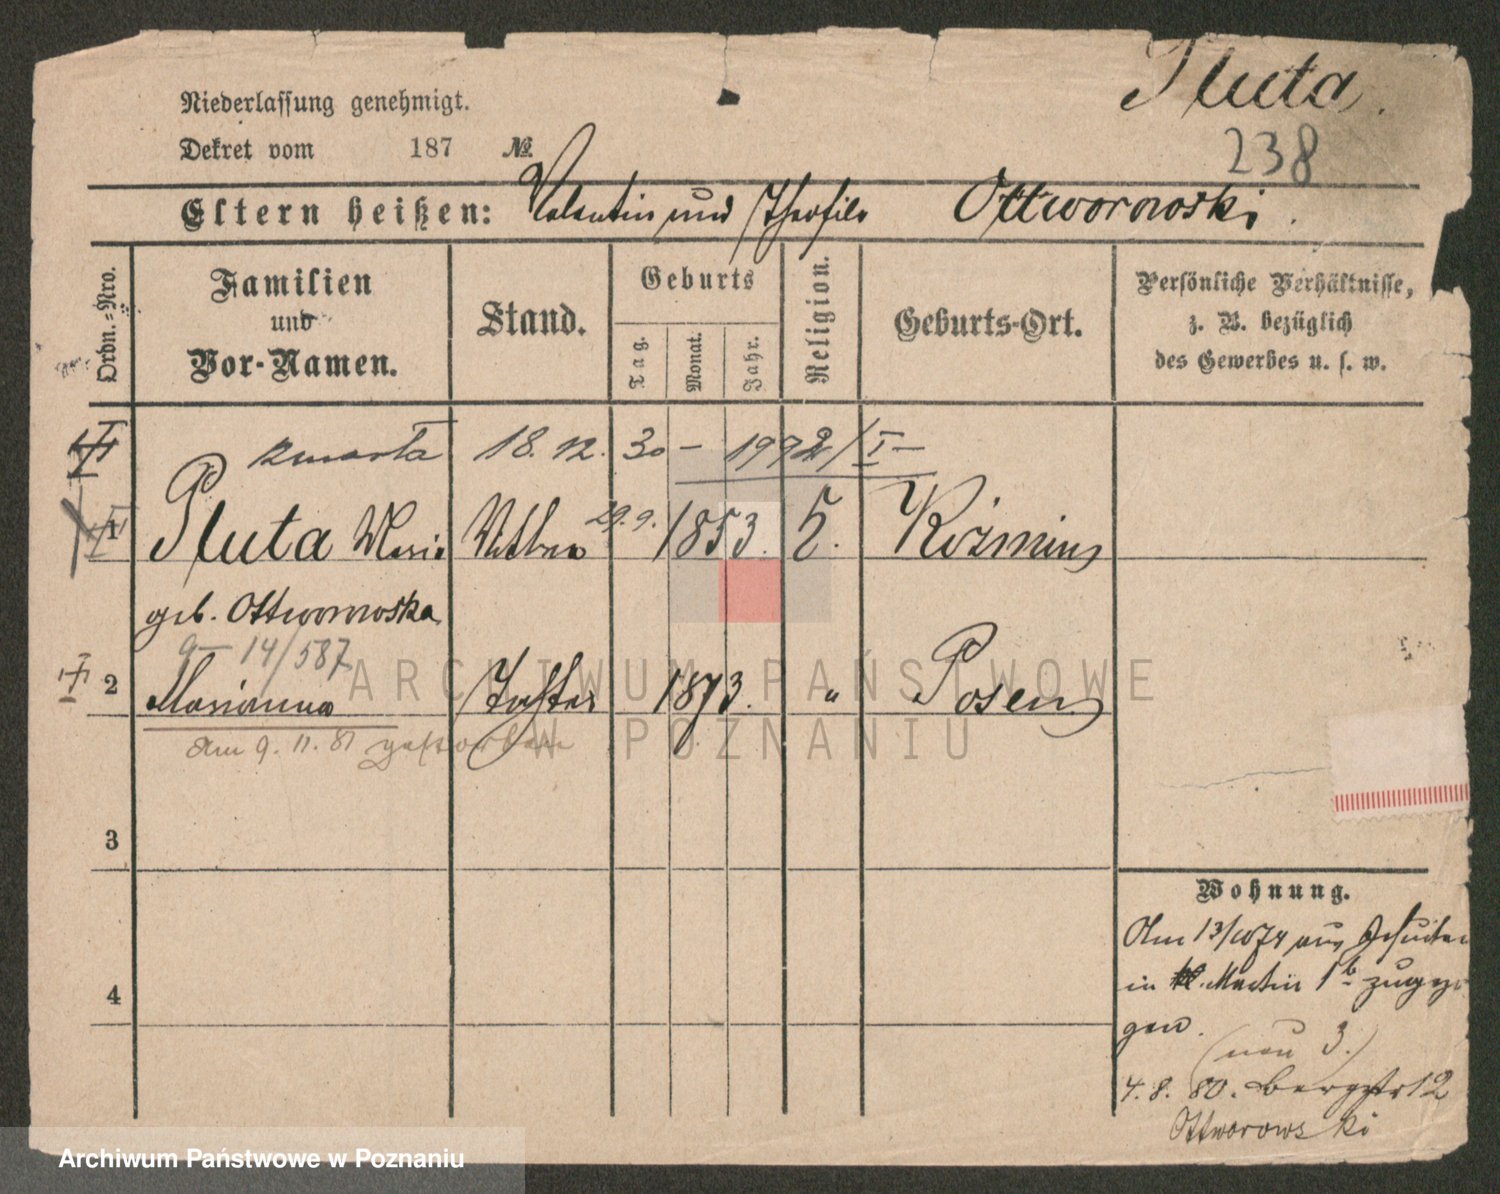 Pluta.
238
Niederlassung genehmigt.
Dekret vom 187 №
Eltern heißen: Valentin und Theofila Ottworowski.
Ordn.-Nro.
Familien
und
Vor-Namen.
Stand.
Geburts
Tag.
Monat.
Jahr.
Religion.
Geburts-Ort.
Persönliche Verhältnisse,
z. B. bezüglich
des Gewerbes u. s. w.
18. 12. 30 –
1 Pluta Maria 29. 9. 1853. Kożmin
geb. Ottworowska
9 – 14/587
2 Marianna Tochter 1873. " Posen
am 9. 11. 81 gestorben
3
4
Wohnung.
Am 13/10 74 aus
in Martin 1b zugezo
gen.
(neu 3.)
4. 8. 80. Bergstr 12
Ottworowski
ARCHIWUM PAŃSTWOWE
W POZNANIU
Archiwum Państwowe w Poznaniu